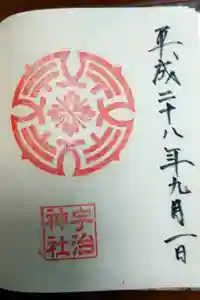 平成二十八年九月一日
宇治
神社